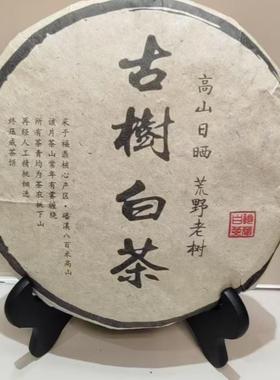 古樹白茶
高山日晒 荒野老树
福鼎白茶
采于福鼎核心产区·磻溪八百米高山
该片茶山常年有雾缠绕
所有茶青均为茶农挑下山
再经人工精挑细选
终压成茶饼